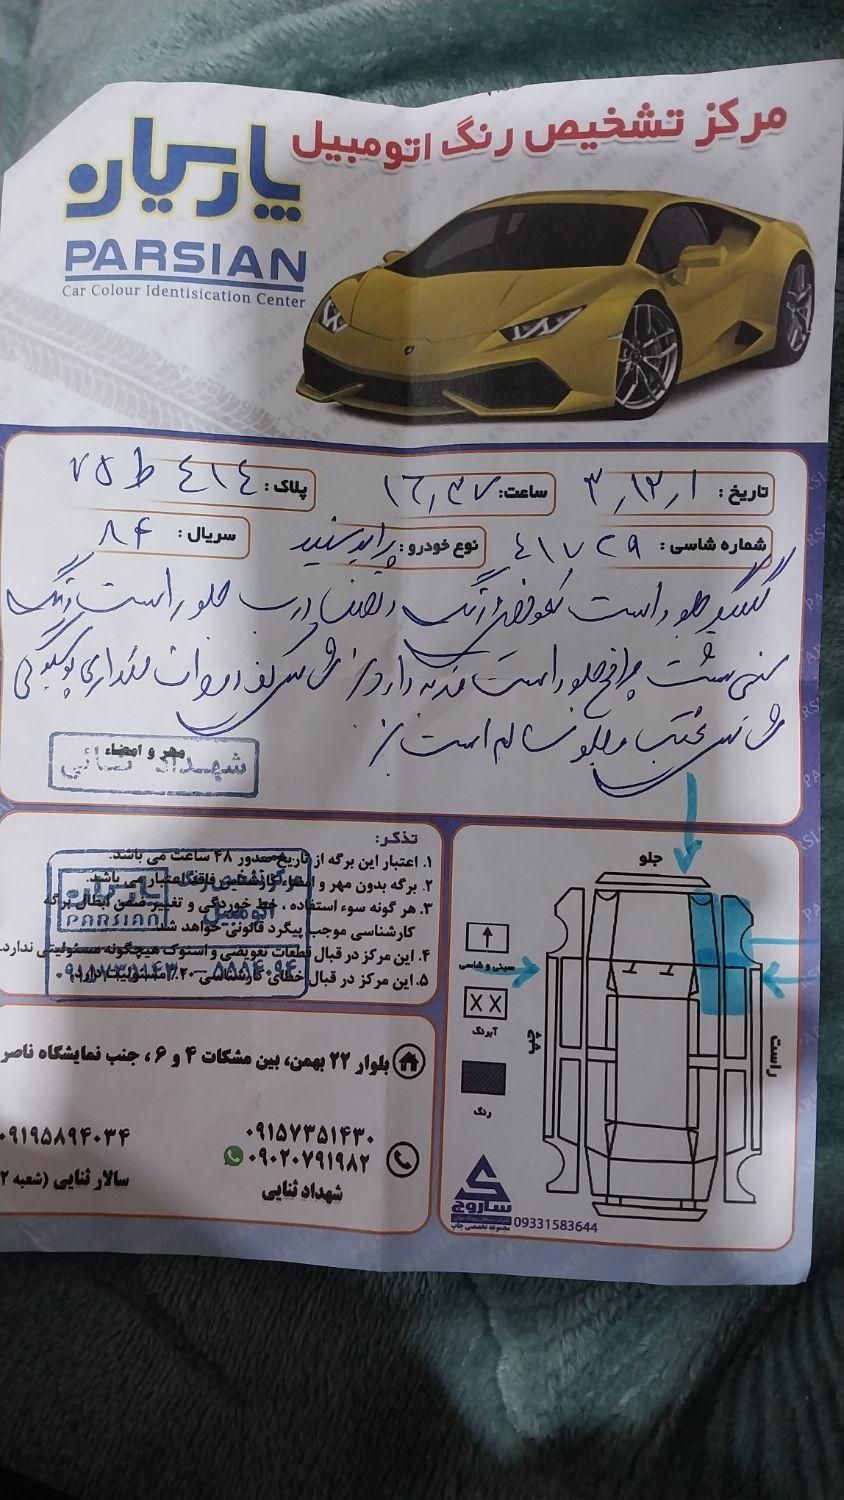 مرکز تشخیص رنگ اتومبیل
پارسیان
PARSIAN
Car Colour Identisication Center
تاریخ : ۳٫۱۲٫۱
ساعت: ۱۶٫۳۷
پلاک : ۴۱۴ ط ۷۵
شماره شاسی : ۴۱۷۲۹
نوع خودرو : پراید سفید
سریال : ۸۴
گلگیر جلو راست تعویض رنگ درب جلو راست رنگ
جلو راست ضربه دارد
عقب و جلو سالم است
مهر و امضاء
شهداد ثنائی
تذکر:
۱. اعتبار این برگه از تاریخ صدور ۴۸ ساعت می باشد.
۲. برگه بدون مهر و امضاء کارشناس فاقد اعتبار می باشد.
۳. هر گونه سوء استفاده ، خط خوردگی و تغییر ضمن ابطال برگه
کارشناسی موجب پیگرد قانونی خواهد شد.
۴. این مرکز در قبال قطعات تعویضی و استوک هیچگونه مسئولیتی ندارد.
۵. این مرکز در قبال خطای کارشناسی ۲۰٪ مسئولیت دارد.
PARSIAN
اتومبیل
جلو
سینی و شاسی
X X
آبرنگ
رنگ
راست
بلوار ۲۲ بهمن، بین مشکات ۴ و ۶ ، جنب نمایشگاه ناصر
۰۹۱۵۷۳۵۱۴۳۰
۰۹۰۲۰۷۹۱۹۸۲
شهداد ثنایی
۰۹۱۹۵۸۹۴۰۳۴
سالار ثنایی (شعبه ۲
ساروج
مجموعه تخصصی چاپ
09331583644